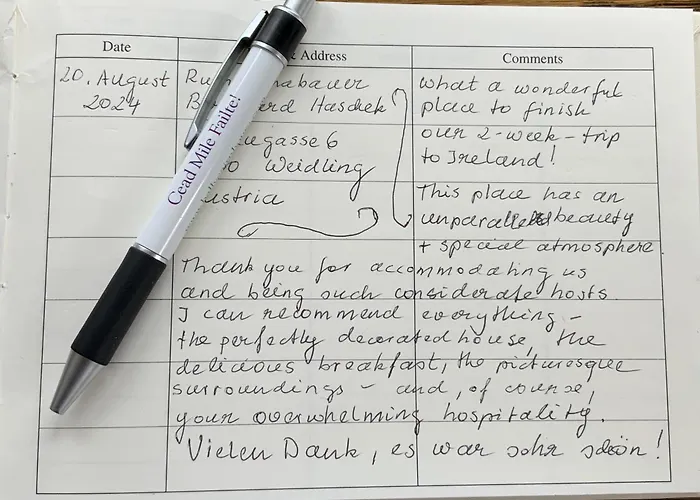 Date
Address
Comments
20. August
2024
Haschek
6
Weidling
What a wonderful
place to finish
our 2-week-trip
to Ireland!
This place has an
unparalleled beauty
+ special atmosphere.
Thank you for accommodating us
and being such considerate hosts.
I can recommend everything –
the perfectly decorated house, the
delicious breakfast, the picturesque
surroundings – and, of course,
your overwhelming hospitality.
Vielen Dank, es war sehr schön!
Cead Mile Failte!